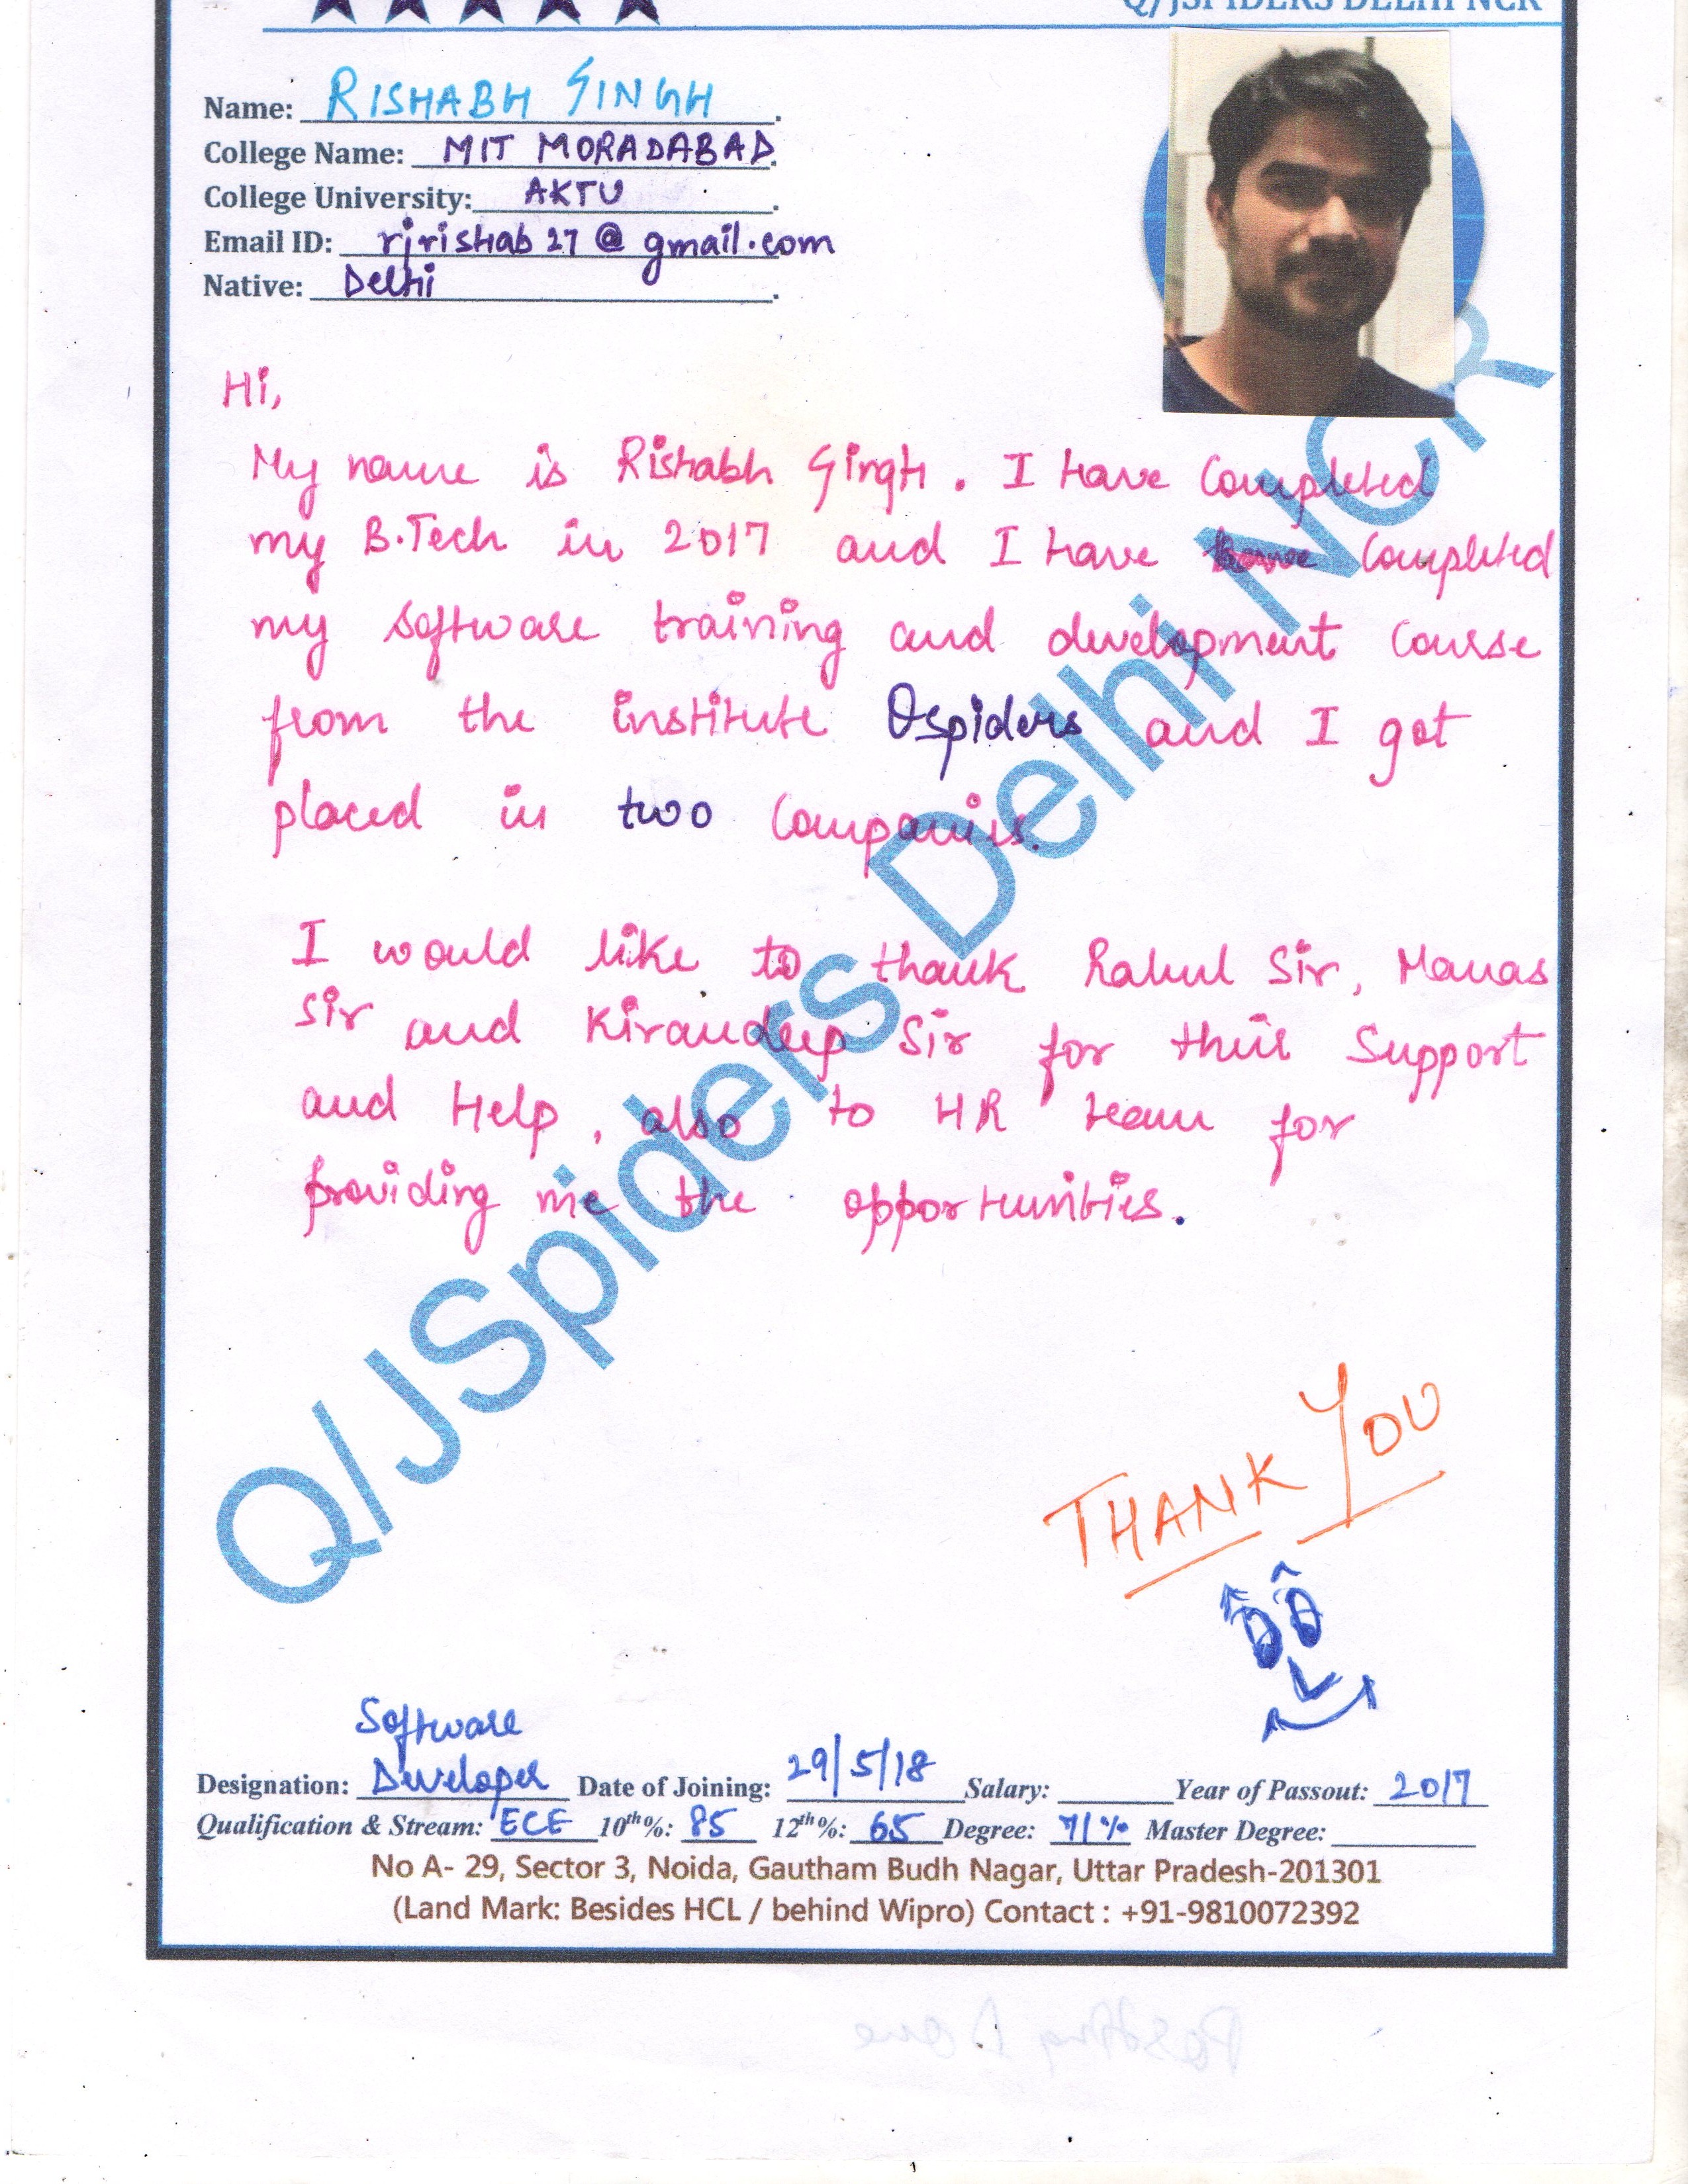 Q/JSPIDERS DELHI NCR
Name: RISHABH SINGH
College Name: MIT MORADABAD
College University: AKTU
Email ID: rjrishab27@gmail.com
Native: Delhi
Hi,
My name is Rishabh Singh. I have Completed
my B.Tech in 2017 and I have Completed
my software training and development Course
from the institute Qspiders and I got
placed in two Companies.
I would like to thank Rahul Sir, Manas
Sir and Kirandeep Sir for their Support
and Help, also to HR team for
providing me the opportunities.
Q/JSpiders Delhi NCR
THANK YOU
Software
Designation: Developer Date of Joining: 29/5/18 Salary: Year of Passout: 2017
Qualification & Stream: ECE 10th%: 85 12th%: 65 Degree: 71% Master Degree:
No A- 29, Sector 3, Noida, Gautham Budh Nagar, Uttar Pradesh-201301
(Land Mark: Besides HCL / behind Wipro) Contact : +91-9810072392